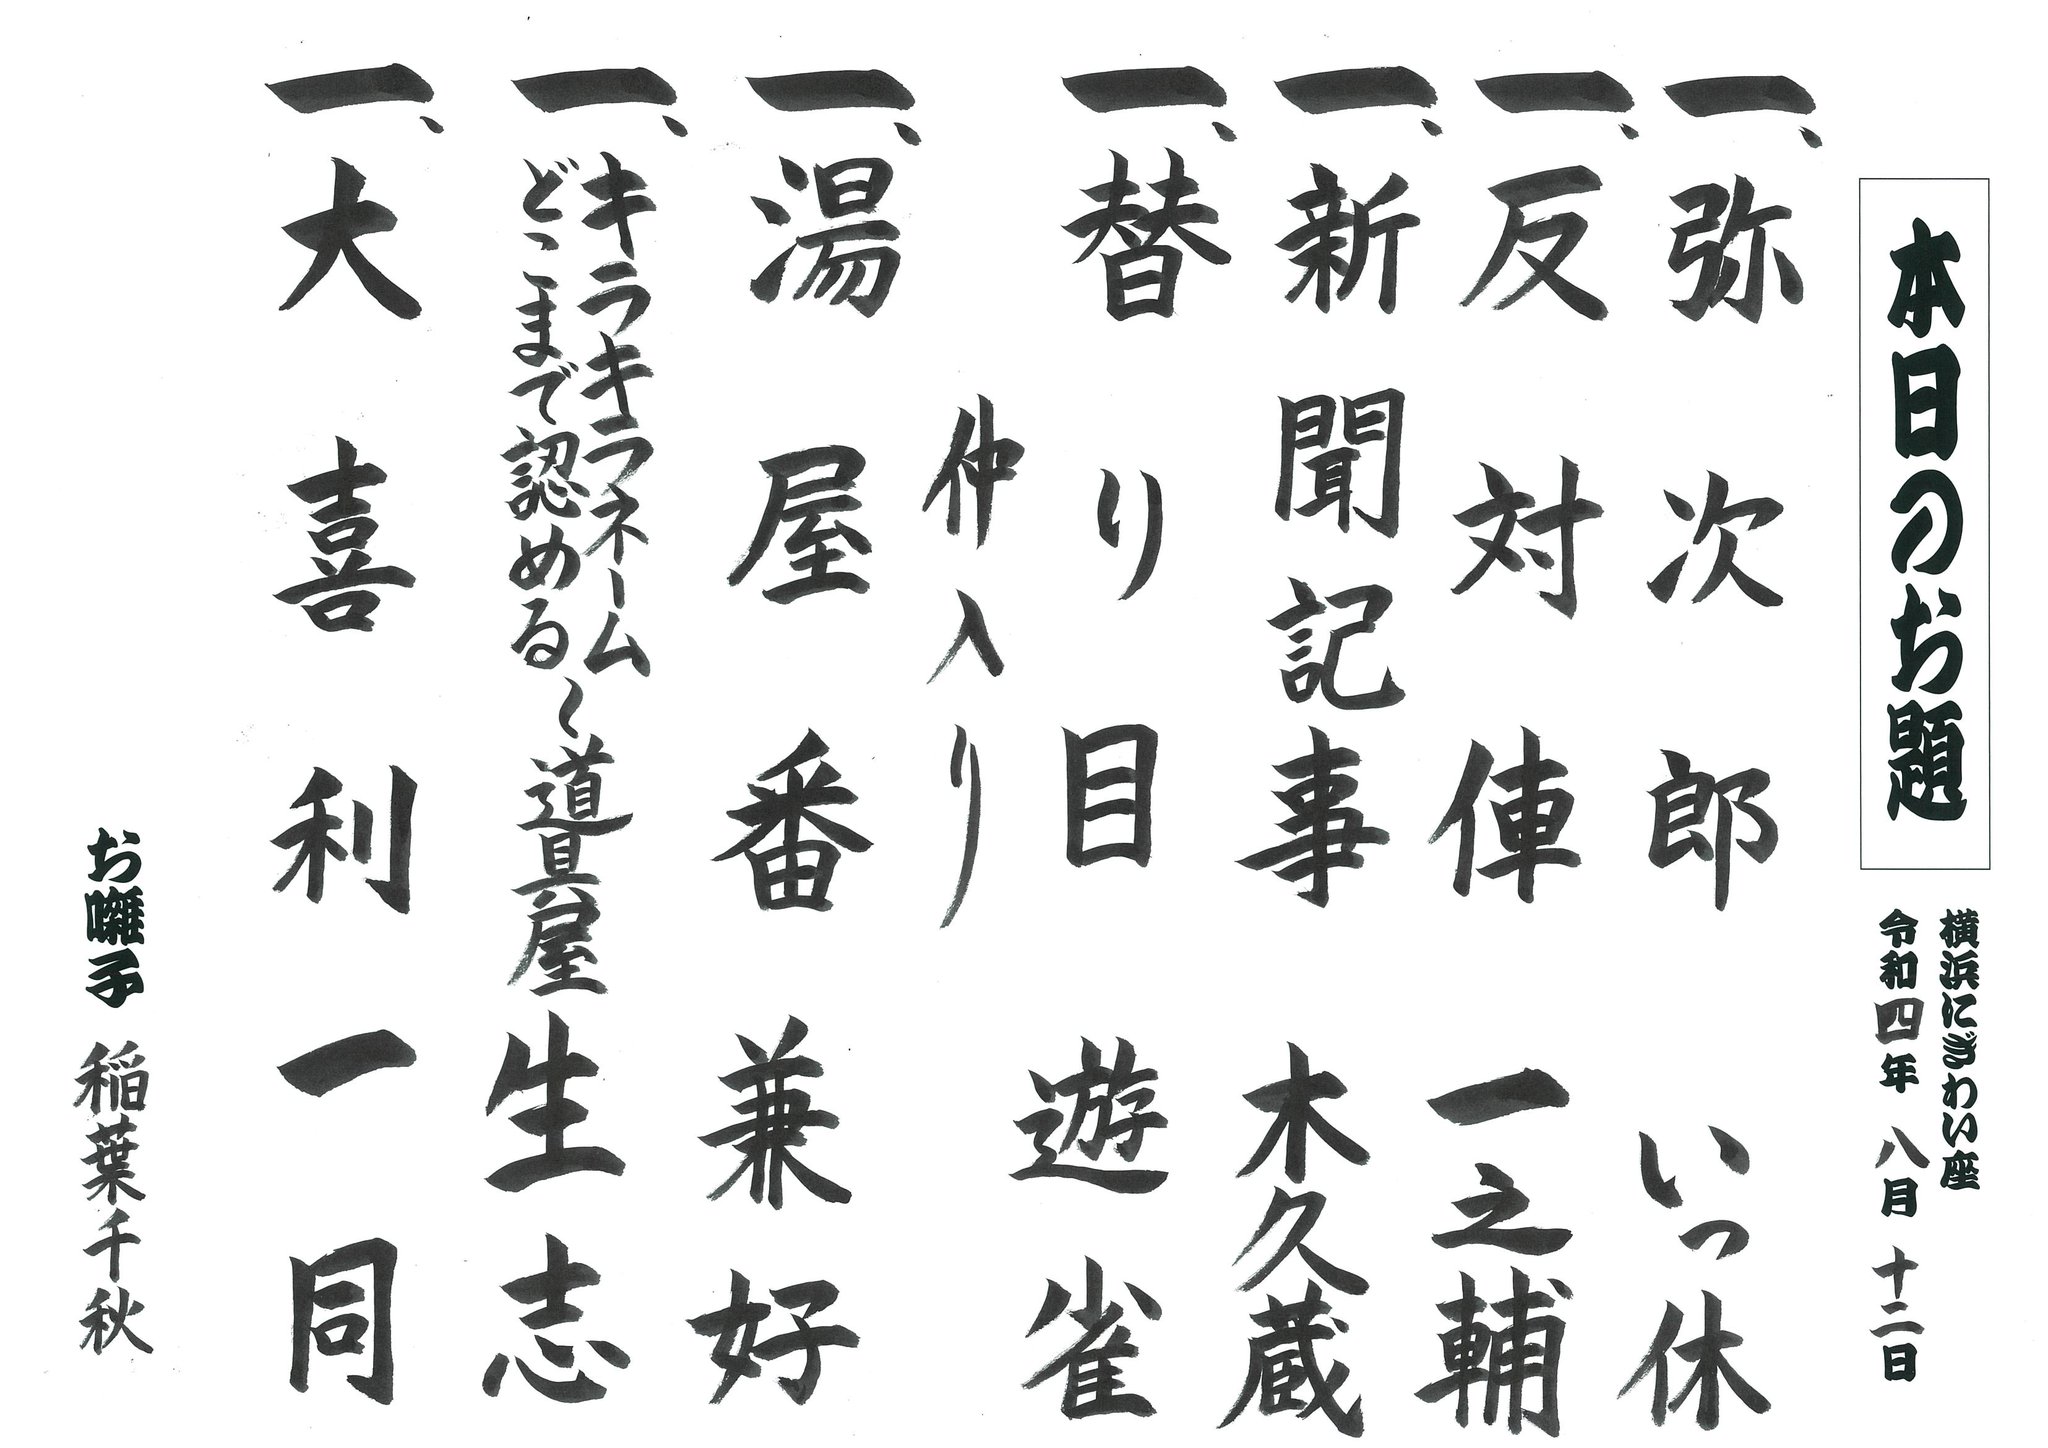 本日のお題
横浜にぎわい座
令和四年 八月 十二日
一、弥次郎 いっ休
一、反対俥 一之輔
一、新聞記事 木久蔵
一、替り目 遊雀
仲入り
一、湯屋番 兼好
一、キラキラネーム
どこまで認める〜道具屋 生志
一、大喜利 一同
お囃子 稲葉千秋